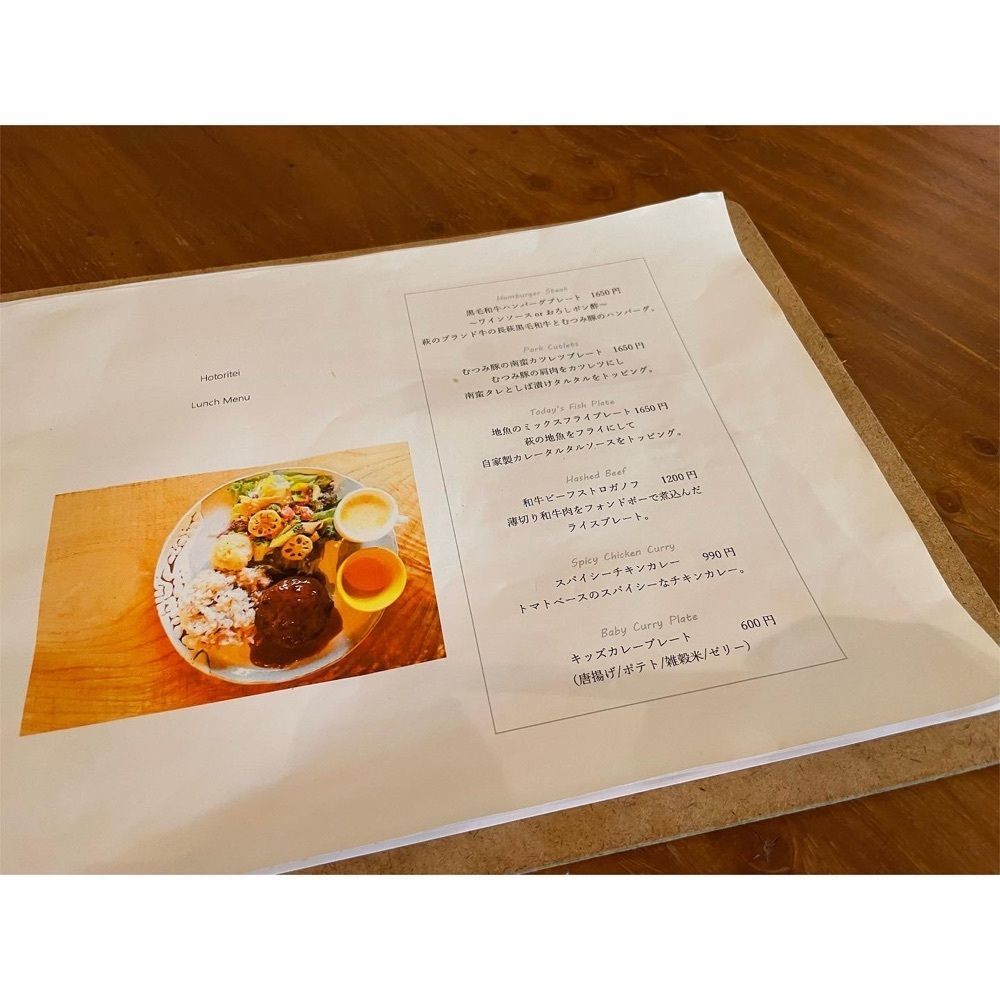 Hotoritei
Lunch Menu
Hamburger Steak
黒毛和牛ハンバーグプレート 1650円
～ワインソース or おろしポン酢～
萩のブランド牛の長萩黒毛和牛とむつみ豚のハンバーグ。
Pork Cutlets
むつみ豚の南蛮カツレツプレート 1650円
むつみ豚の肩肉をカツレツにし
南蛮タレとしば漬けタルタルをトッピング。
Today's Fish Plate
地魚のミックスフライプレート1650円
萩の地魚をフライにして
自家製カレータルタルソースをトッピング。
Hashed Beef
和牛ビーフストロガノフ 1200円
薄切り和牛肉をフォンドボーで煮込んだ
ライスプレート。
Spicy Chicken Curry
スパイシーチキンカレー 990円
トマトベースのスパイシーなチキンカレー。
Baby Curry Plate
キッズカレープレート 600円
(唐揚げ/ポテト/雑穀米/ゼリー)